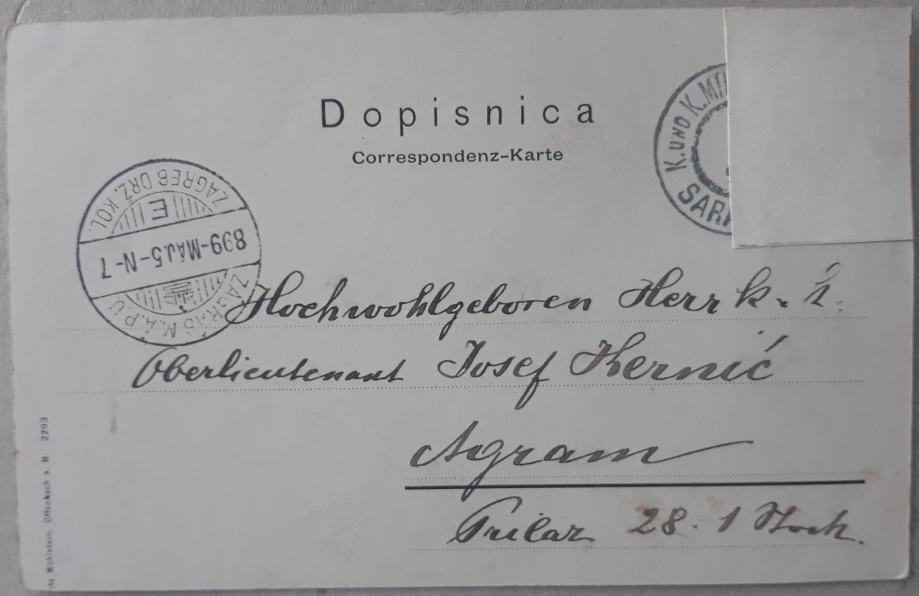 Dopisnica
Correspondenz-Karte
K. UND K. MI
SAR
ZAGREB DRŽ. KOL.
E
899-MÁJ.5-N-7
ZÁGRÁB M.Á.P.U.
Hochwohlgeboren Herr k. k.
Oberlieutenant Josef Kernić
Agram
Prilaz 28. 1 Stock.
Mühlstein, Offenbach a. M. 2203